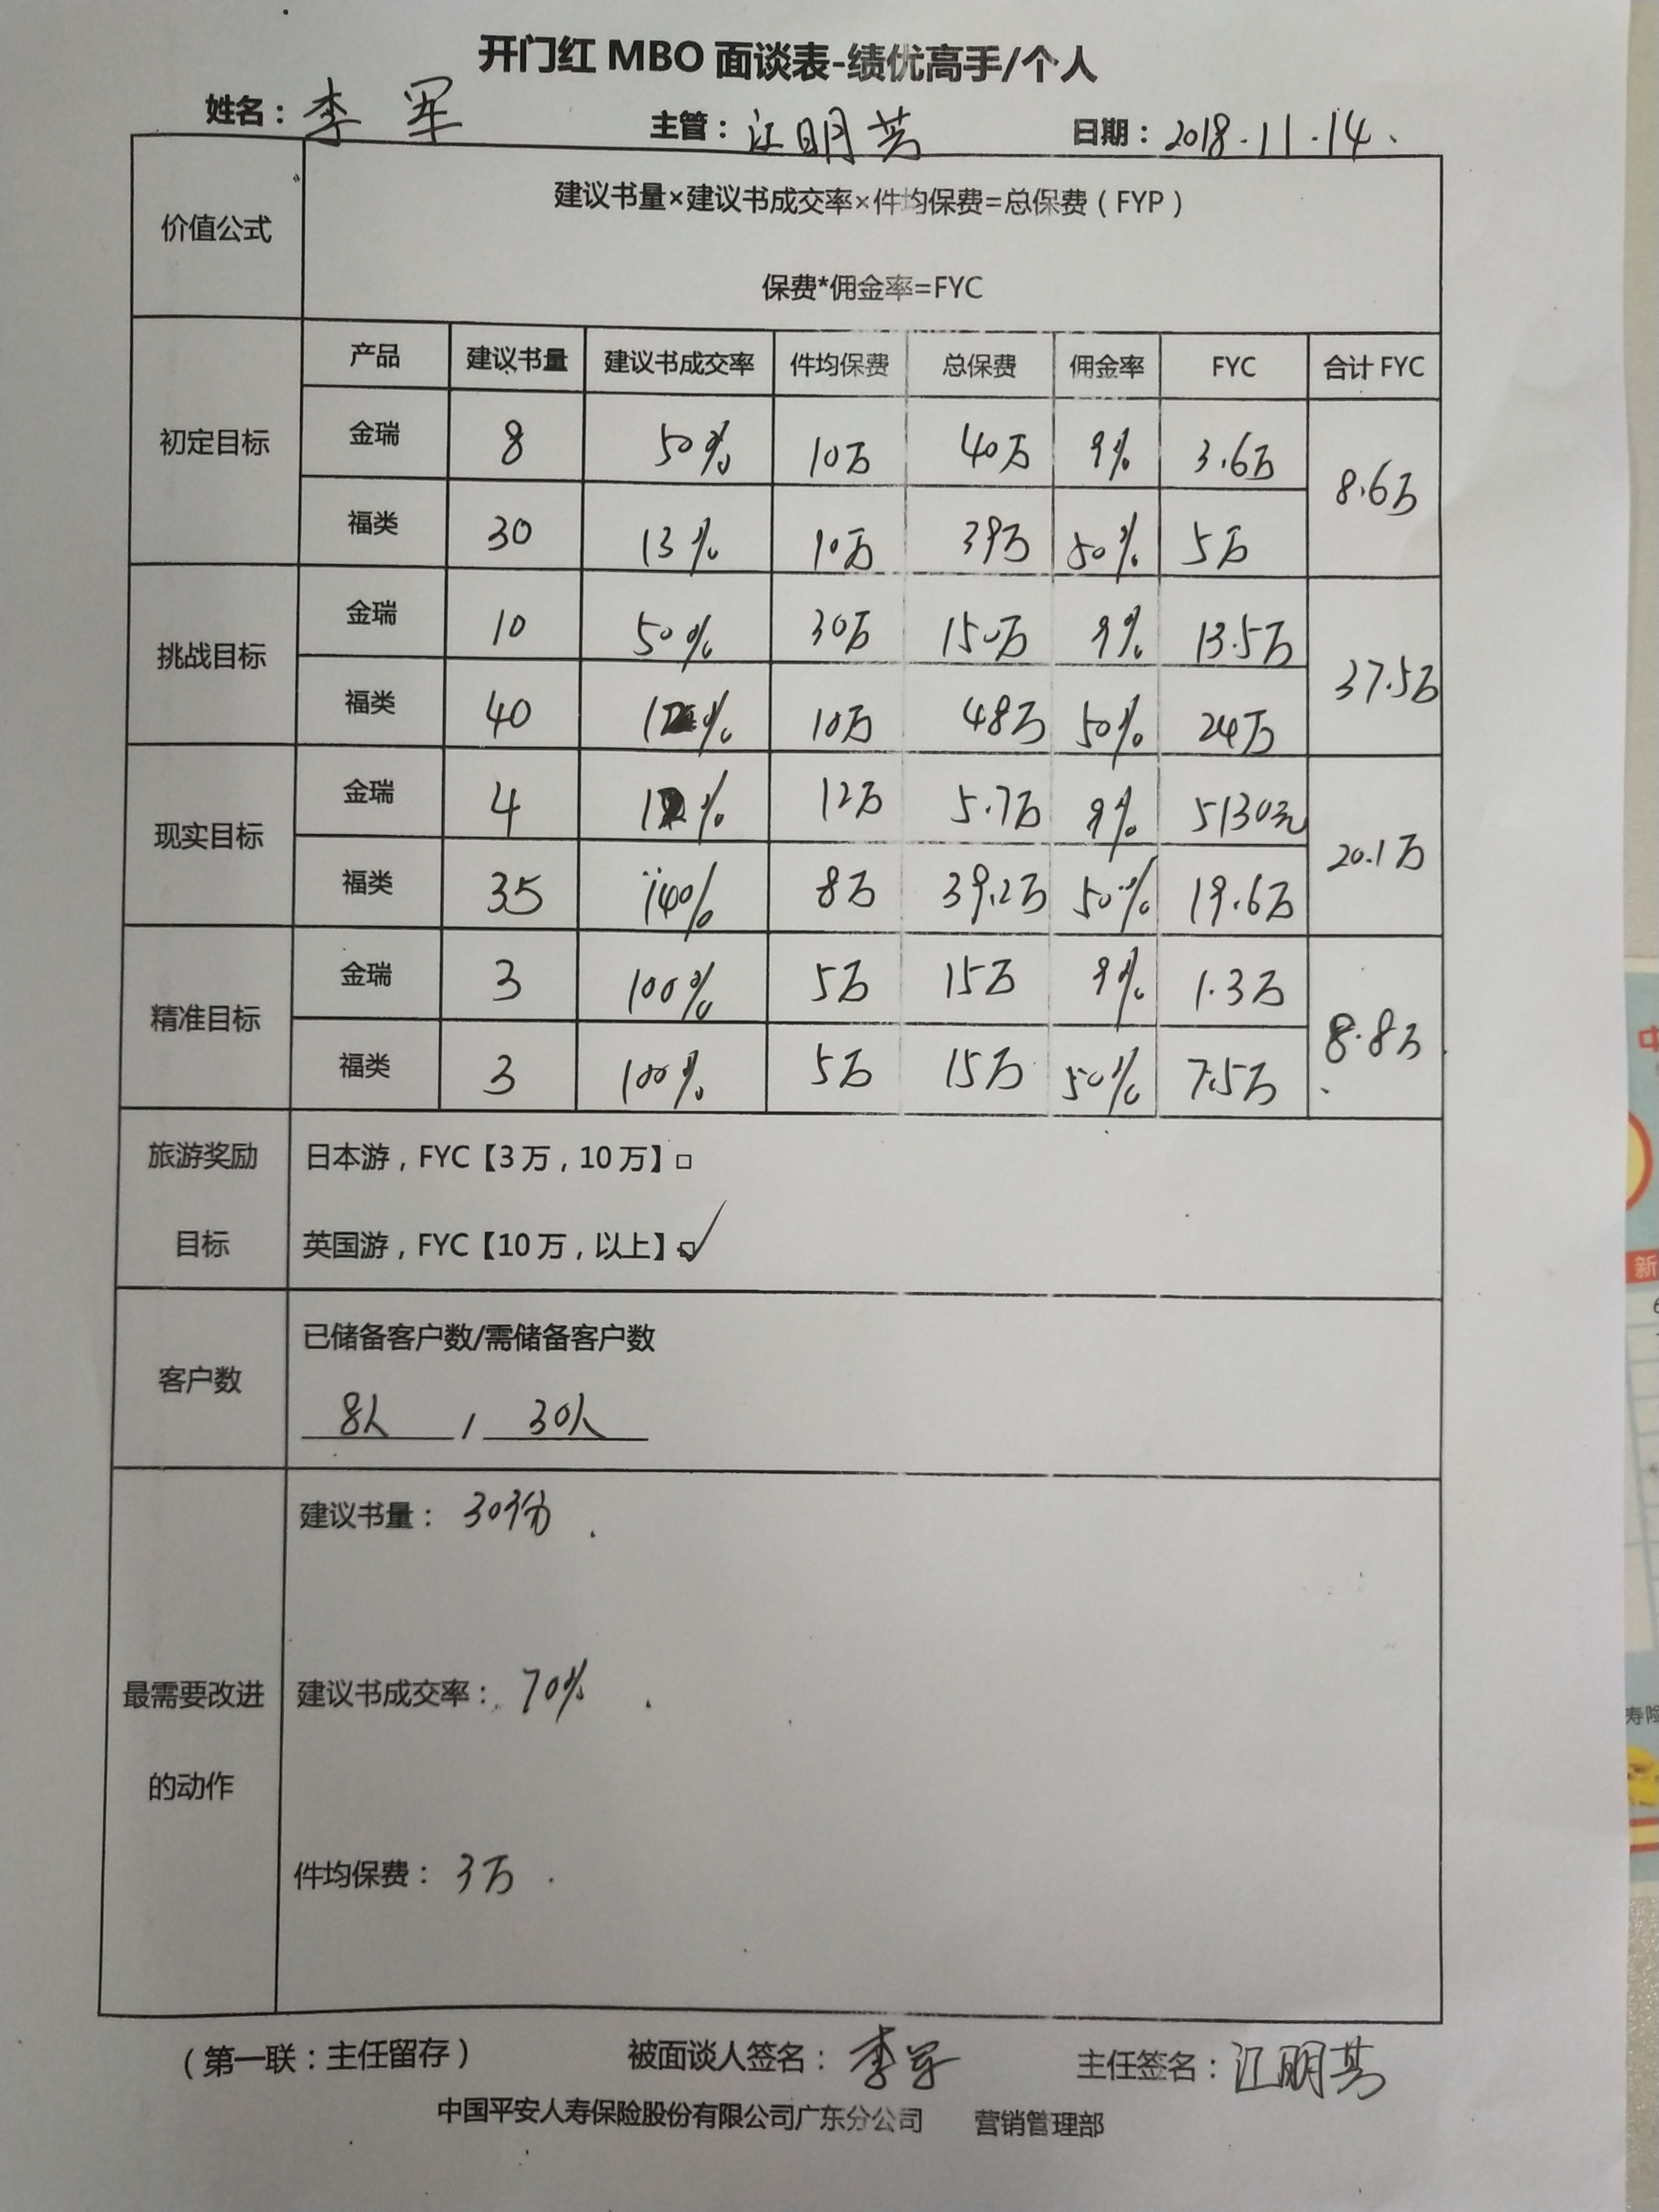 开门红 MBO 面谈表-绩优高手/个人
姓名：李军 主管：江明芳 日期：2018.11.14.
价值公式
建议书量×建议书成交率×件均保费=总保费（FYP）
保费*佣金率=FYC
产品 建议书量 建议书成交率 件均保费 总保费 佣金率 FYC 合计 FYC
初定目标
金瑞 8 50% 10万 40万 9% 3.6万
8.6万
福类 30 13% 10万 39万 50% 5万
挑战目标
金瑞 10 50% 30万 150万 9% 13.5万
37.5万
福类 40 10万 48万 50% 24万
现实目标
金瑞 4 12万 5.7万 9% 5130元
20.1万
福类 35 14% 8万 39.2万 50% 19.6万
精准目标
金瑞 3 100% 5万 15万 9% 1.3万
8.8万
福类 3 100% 5万 15万 50% 7.5万
旅游奖励
目标
日本游，FYC【3万，10万】□
英国游，FYC【10万，以上】☑
客户数
已储备客户数/需储备客户数
8人 / 30人
最需要改进
的动作
建议书量：30份.
建议书成交率：70%.
件均保费：3万.
（第一联：主任留存） 被面谈人签名：李军 主任签名：江明芳
中国平安人寿保险股份有限公司广东分公司 营销管理部
中
新
寿险